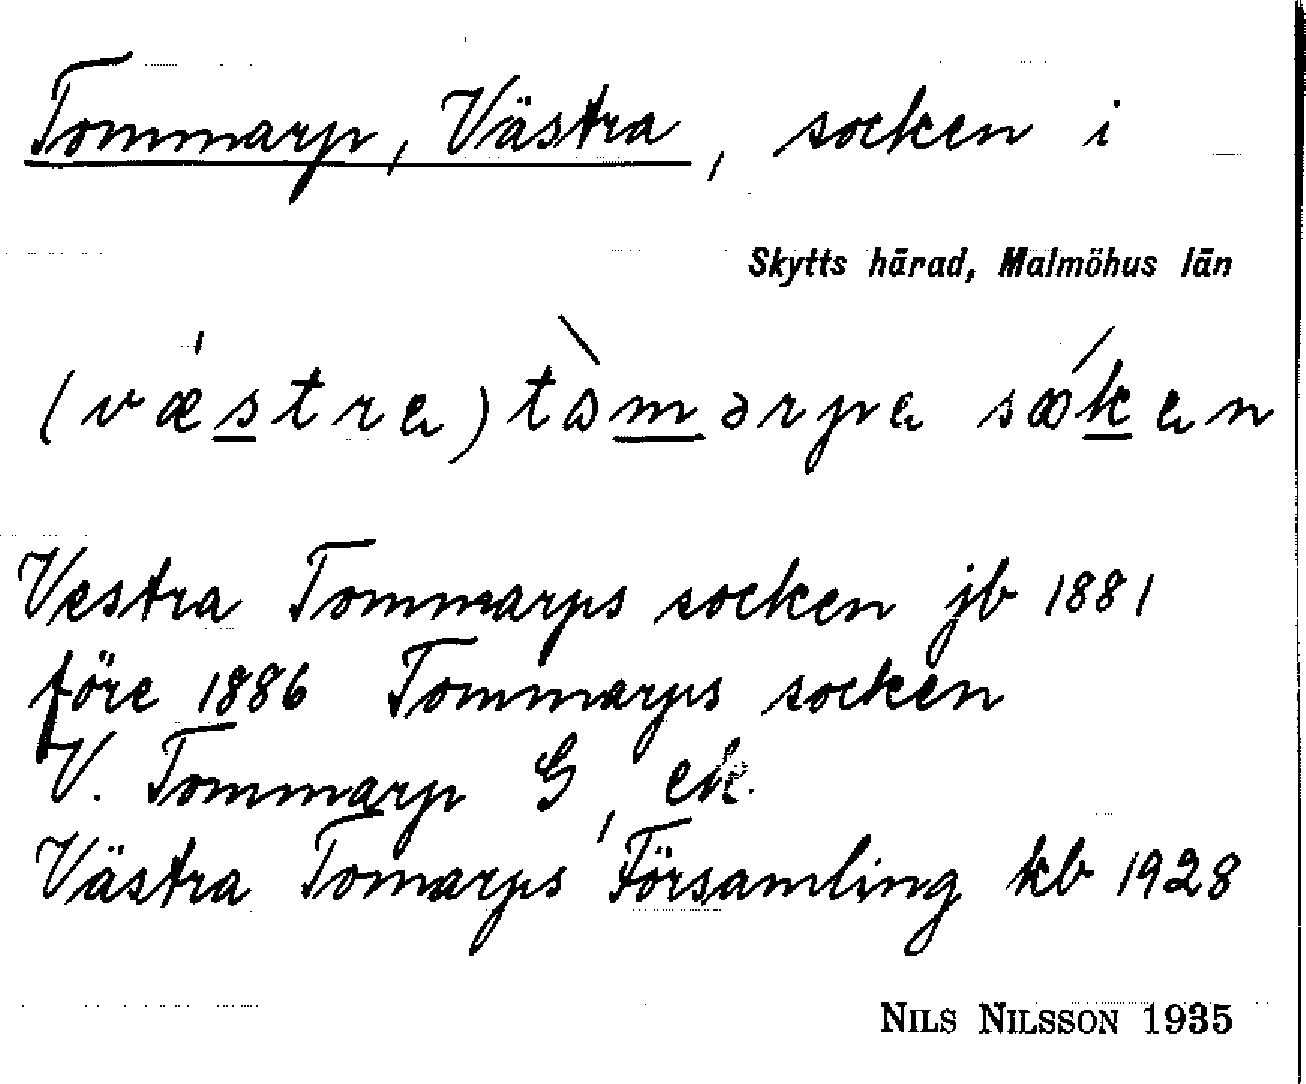 Tommarp, Västra, socken i
Skytts härad, Malmöhus län
(væ̍s̲tra) tòm̲ərpa sǿk̲en
Vestra Tommarps socken jb 1881
före 1886 Tommarps socken
V. Tommarp G, ek.
Västra Tomarps Församling kb 1928
NILS NILSSON 1935